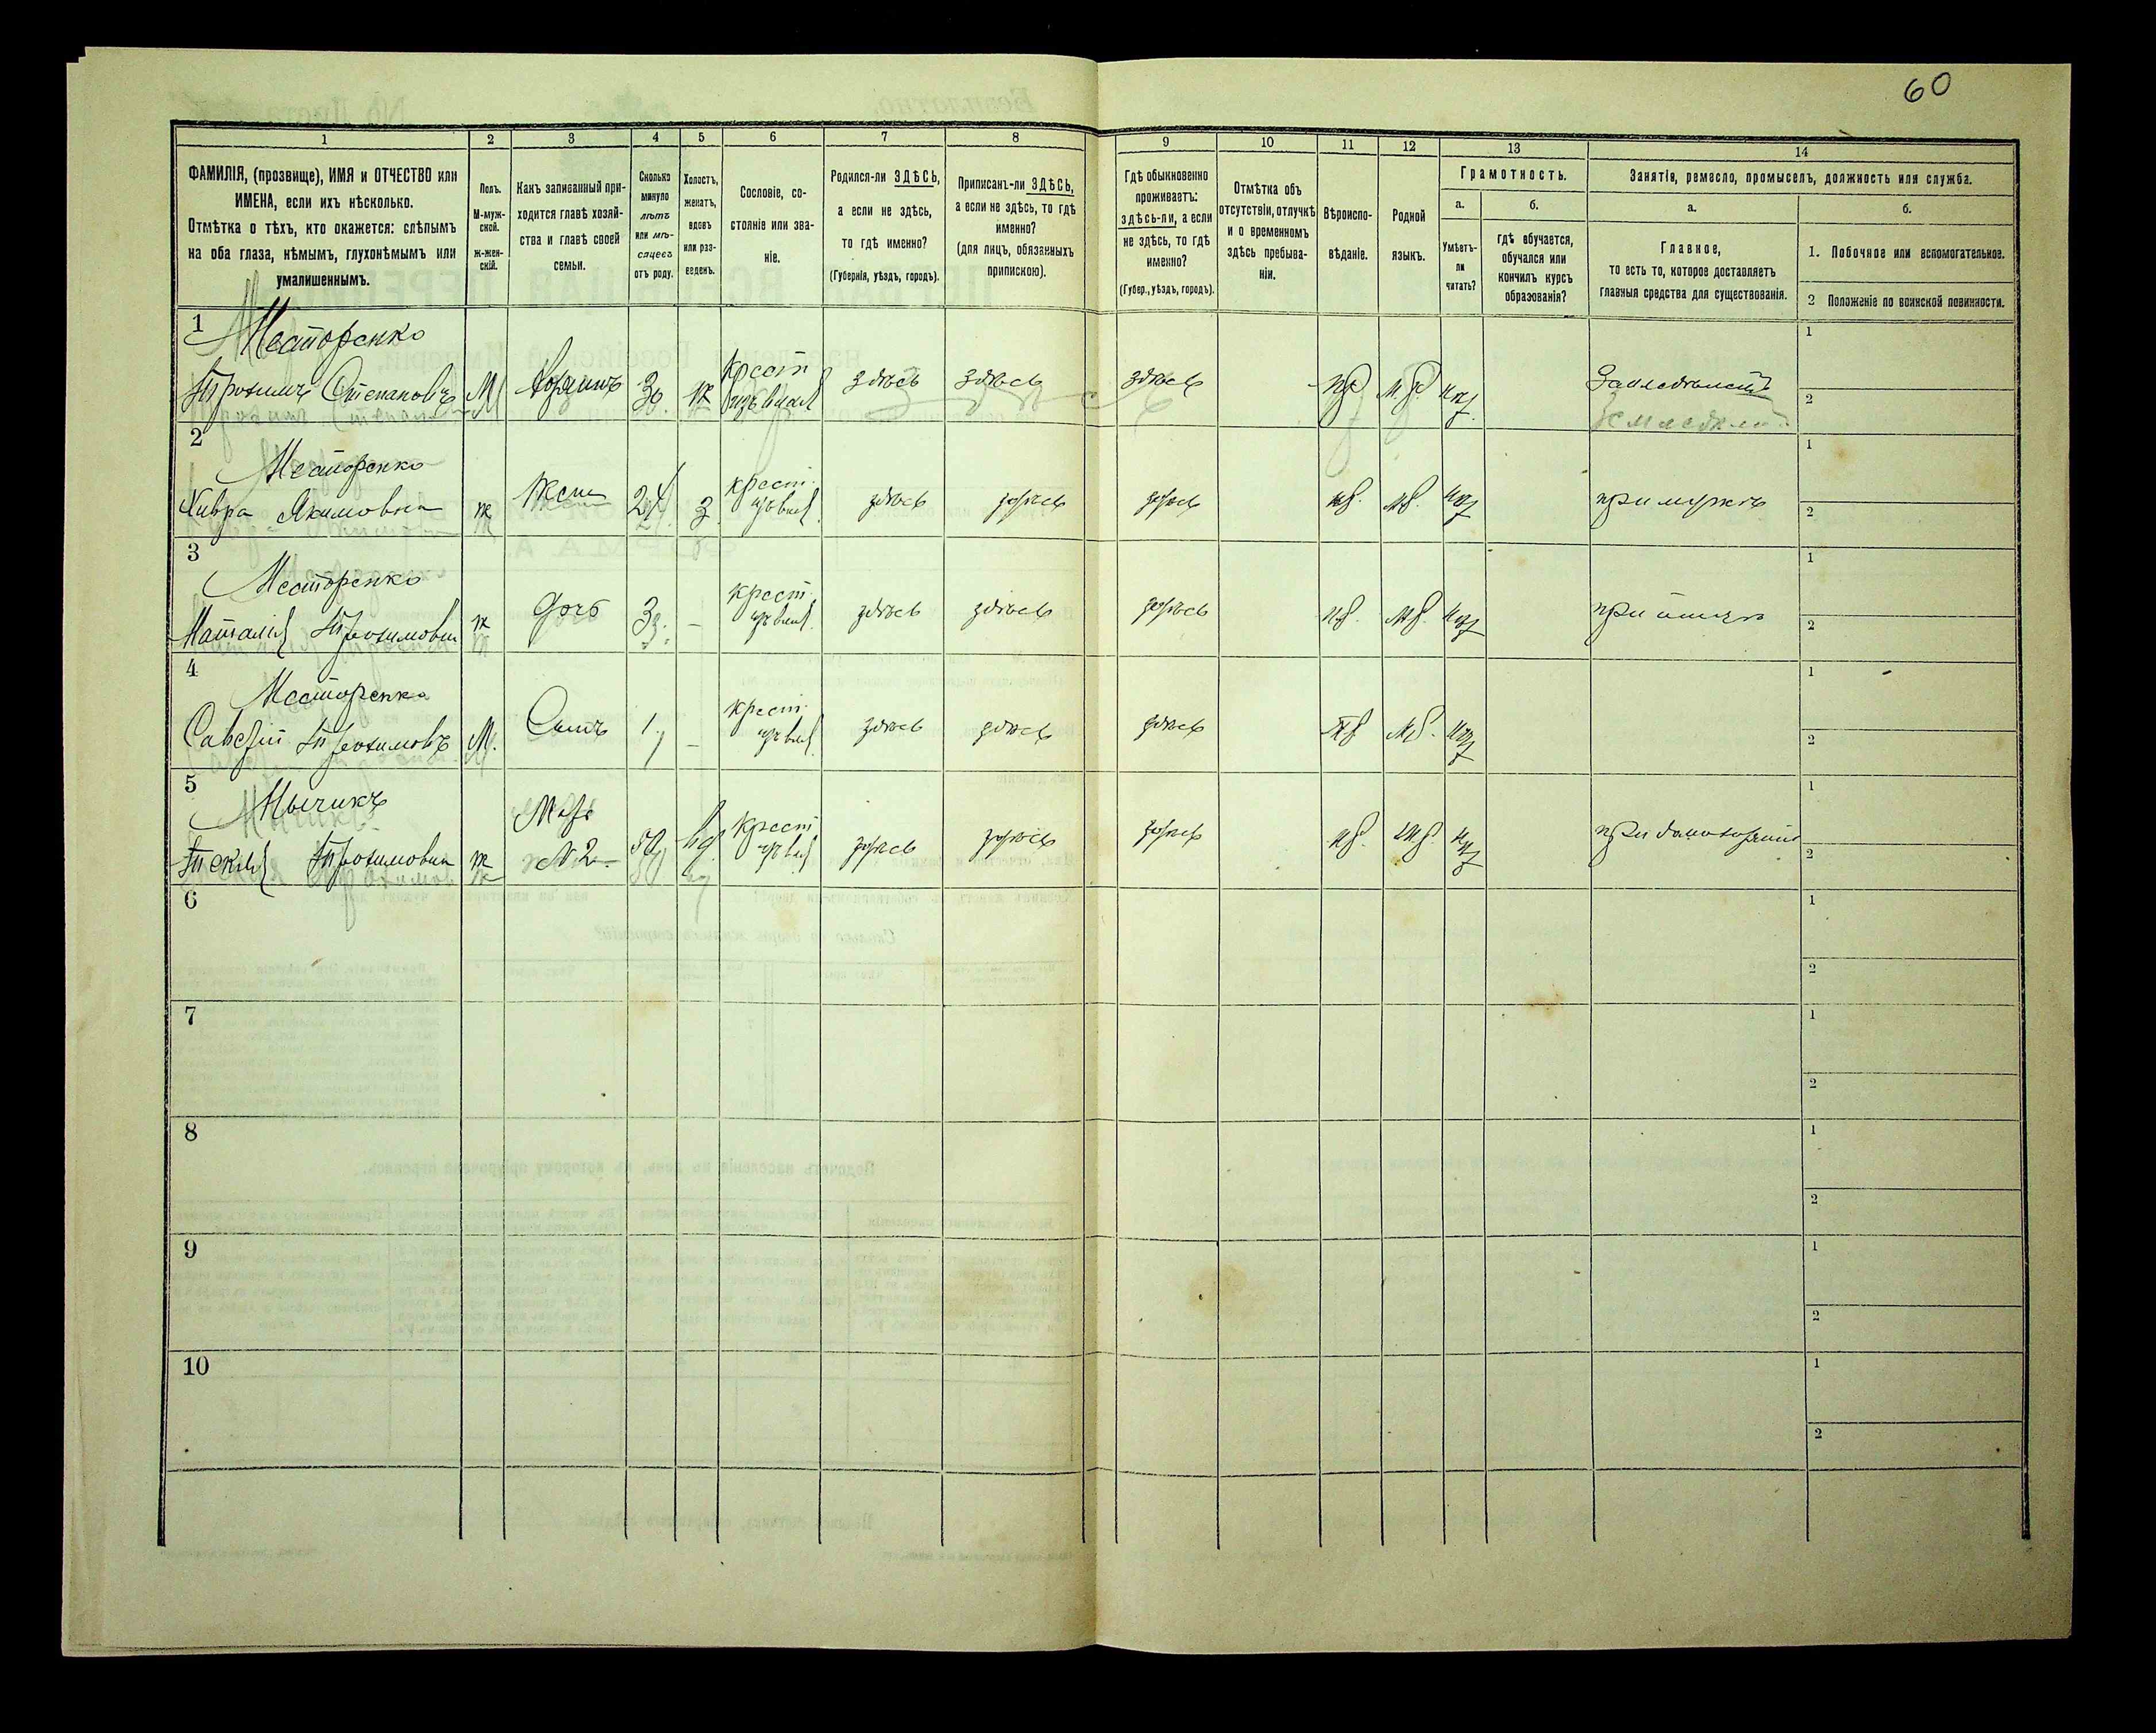 60
1 2 3 4 5 6 7 8 9 10 11 12 13 14
ФАМИЛІЯ, (прозвище), ИМЯ и ОТЧЕСТВО или
ИМЕНА, если ихъ нѣсколько.
Отмѣтка о тѣхъ, кто окажется: слѣпымъ
на оба глаза, нѣмымъ, глухонѣмымъ или
умалишеннымъ.
Полъ.
М-муж-
ской.
ж-жен-
скій.
Какъ записанный при-
ходится главѣ хозяй-
ства и главѣ своей
семьи.
Сколько
минуло
лѣтъ
или мѣ-
сяцевъ
отъ роду.
Холостъ,
женатъ,
вдовъ
или раз-
веденъ.
Сословіе, со-
стояніе или зва-
ніе.
Родился-ли ЗДѢСЬ,
а если не здѣсь,
то гдѣ именно?
(Губернія, уѣздъ, городъ).
Приписанъ-ли ЗДѢСЬ,
а если не здѣсь, то гдѣ
именно?
(для лицъ, обязанныхъ
припискою).
Гдѣ обыкновенно
проживаетъ:
здѣсь-ли, а если
не здѣсь, то гдѣ
именно?
(Губер., уѣздъ, городъ).
Отмѣтка объ
отсутствіи, отлучкѣ
и о временномъ
здѣсь пребыва-
ніи.
Вѣроиспо-
вѣданіе.
Родной
языкъ.
Грамотность.
а.
Умѣетъ-
ли
читать?
б.
гдѣ обучается,
обучался или
кончилъ курсъ
образованія?
Занятіе, ремесло, промыселъ, должность или служба.
а.
Главное,
то есть то, которое доставляетъ
главныя средства для существованія.
б.
1. Побочное или вспомогательное.
2 Положеніе по воинской повинности.
1
Несторенко
Трохимъ Степановъ М Хозяинъ 30 ж Крест здѣсь здѣсь здѣсь
1
2
2
Несторенко
Хивря Якимовна ж Жена 24 З крест. здѣсь здѣсь здѣсь при мужѣ
1
2
3
Несторенко
Наталія Трохимовна ж дочь 3 – крест. здѣсь здѣсь здѣсь при отцѣ
1
2
4
Несторенко
Трохимовъ М. Сынъ 1 – крест. здѣсь здѣсь здѣсь
1
2
5
Нычикъ
Текля Трохимовна ж №2 50 вд. Крест здѣсь здѣсь здѣсь
1
2
6
1
2
7
1
2
8
1
2
9
1
2
10
1
2